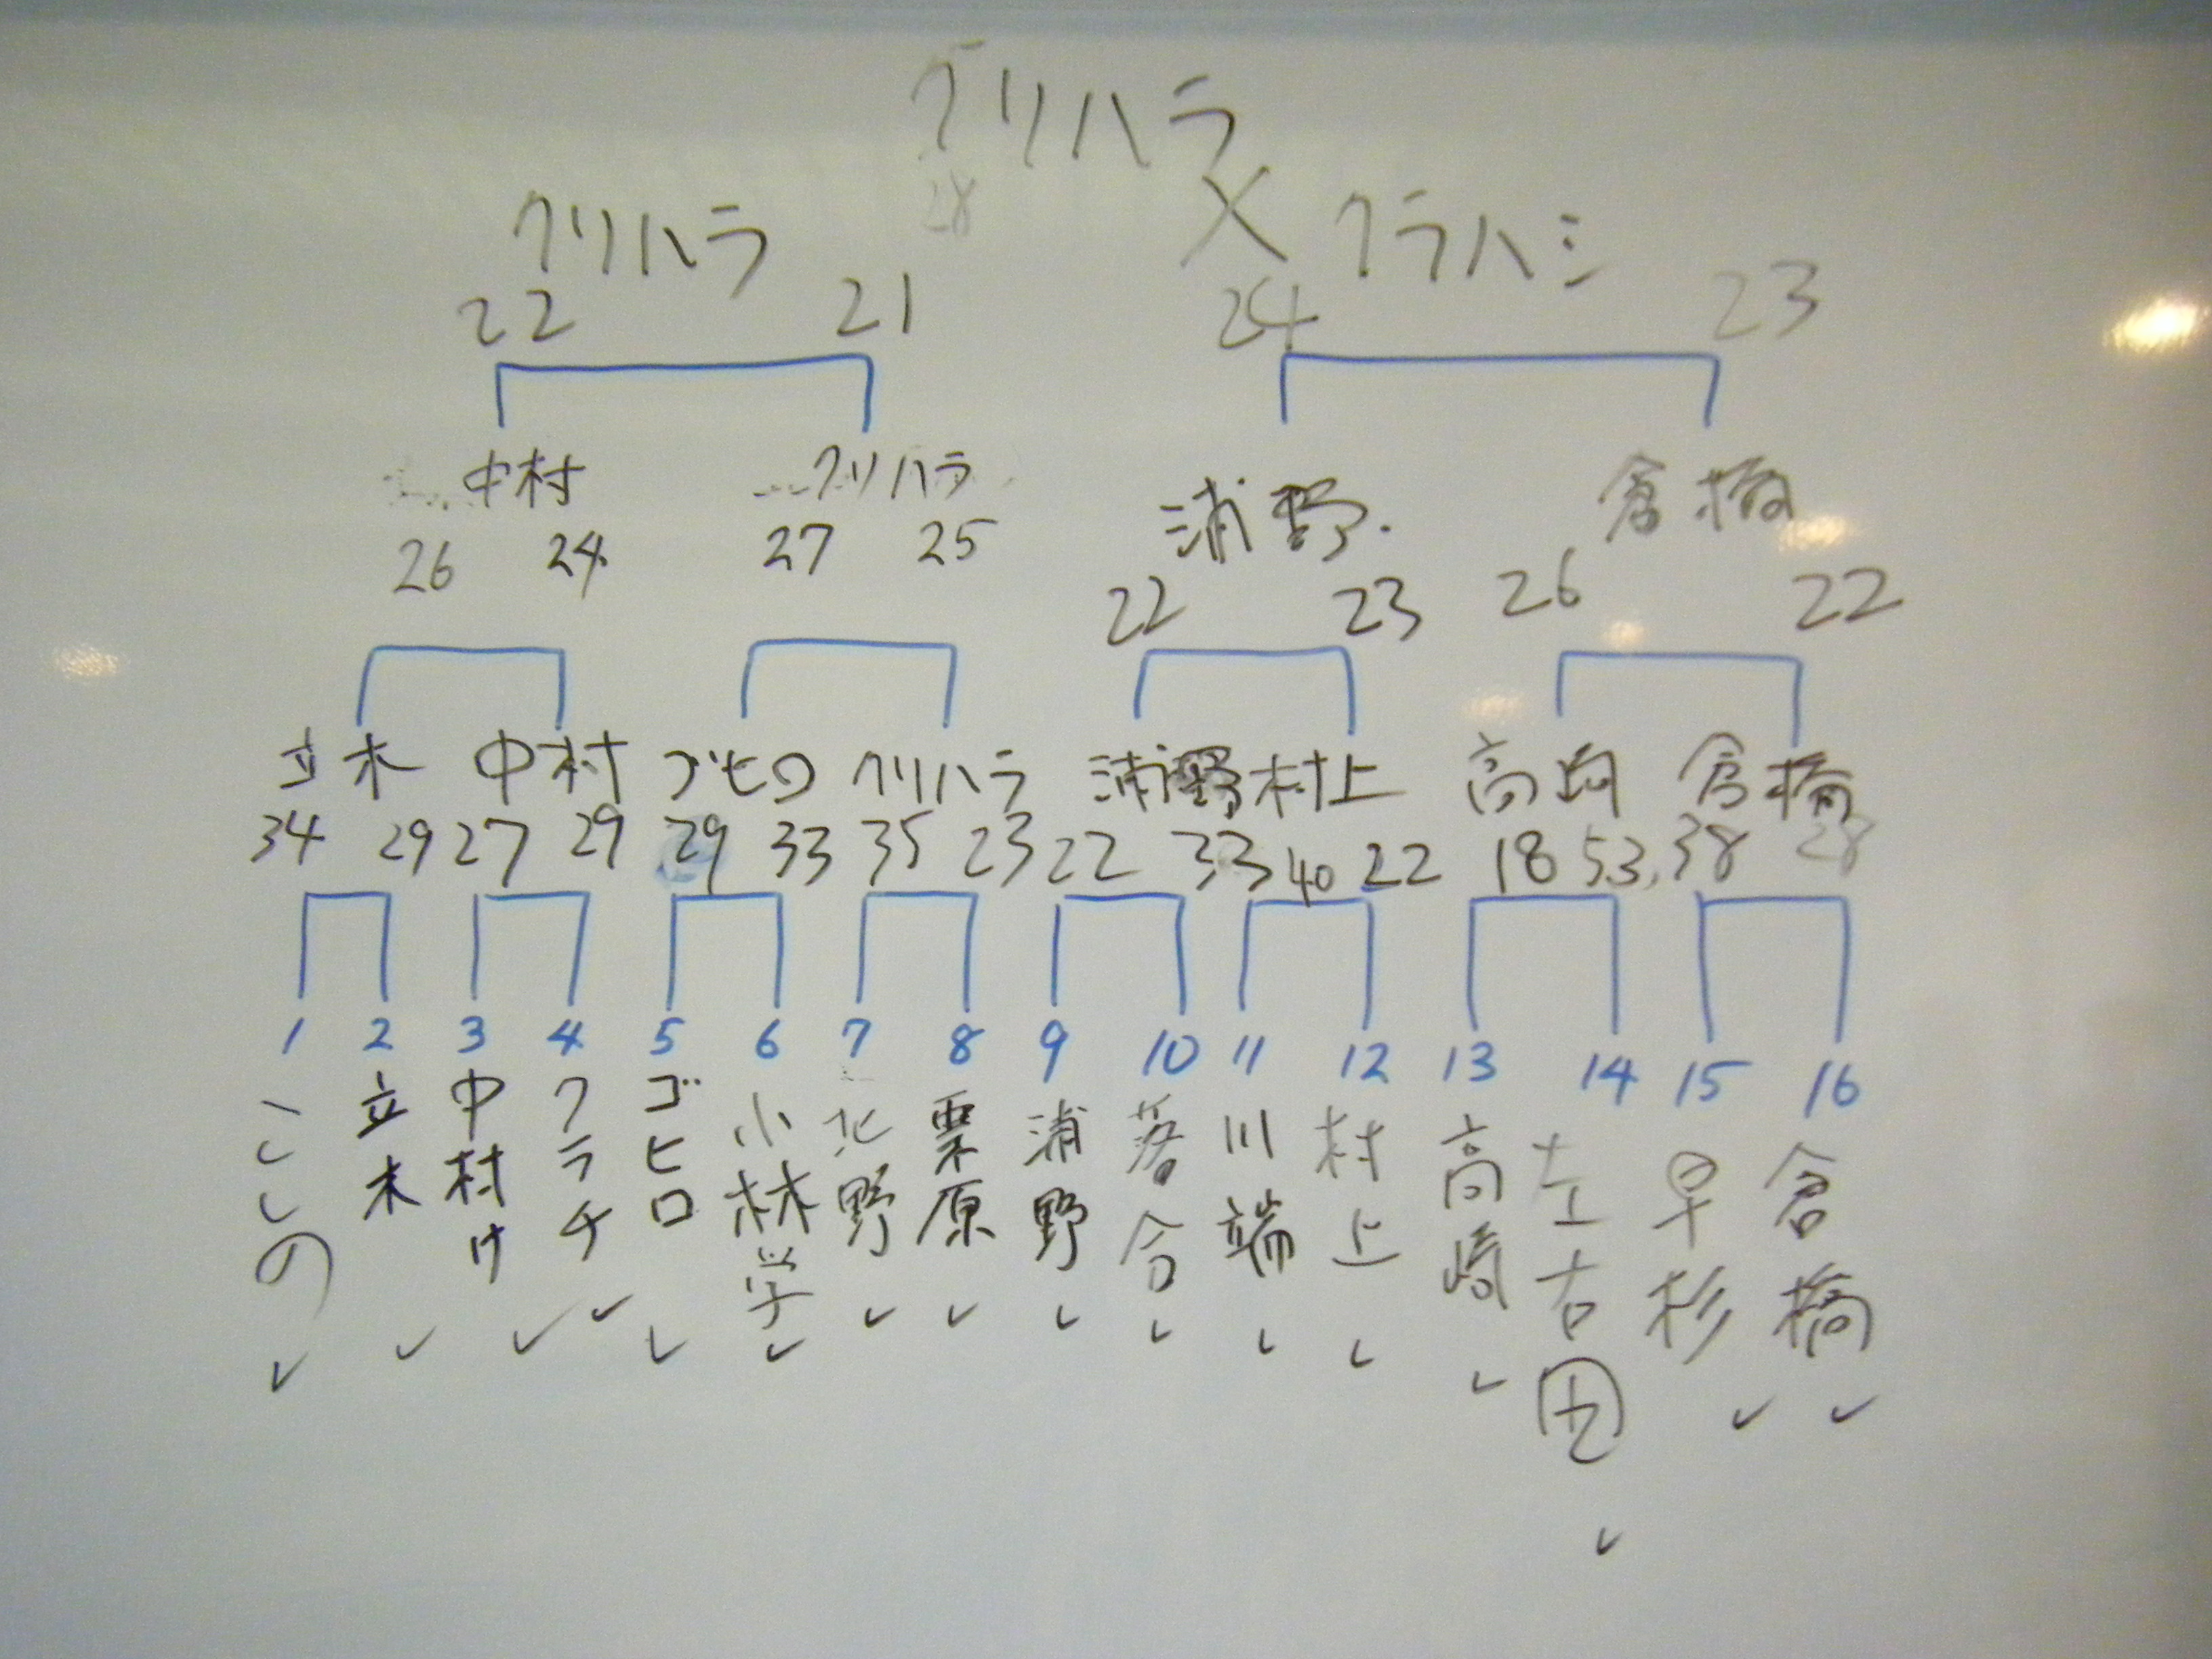 クリハラ
28
クリハラ × クラハシ
22 21 24 23
中村 クリハラ 浦野 倉橋
26 24 27 25 22 23 26 22
立木 中村 ゴヒロ クリハラ 浦野 村上 高崎 倉橋
34 29 27 29 29 33 35 23 22 33 40 22 18 53 38 28
1 2 3 4 5 6 7 8 9 10 11 12 13 14 15 16
立木
中村け
クラチ
ゴヒロ
小林学
北野
栗原
浦野
落合
川端
村上
高崎
左古田
早杉
倉橋